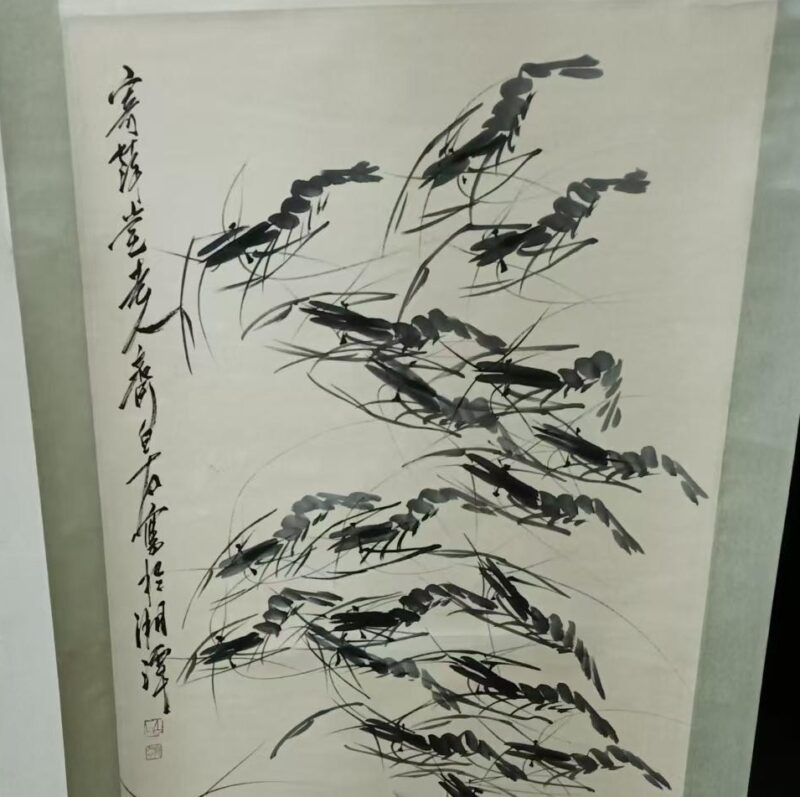 寄萍堂老人齊白石寫於湘潭